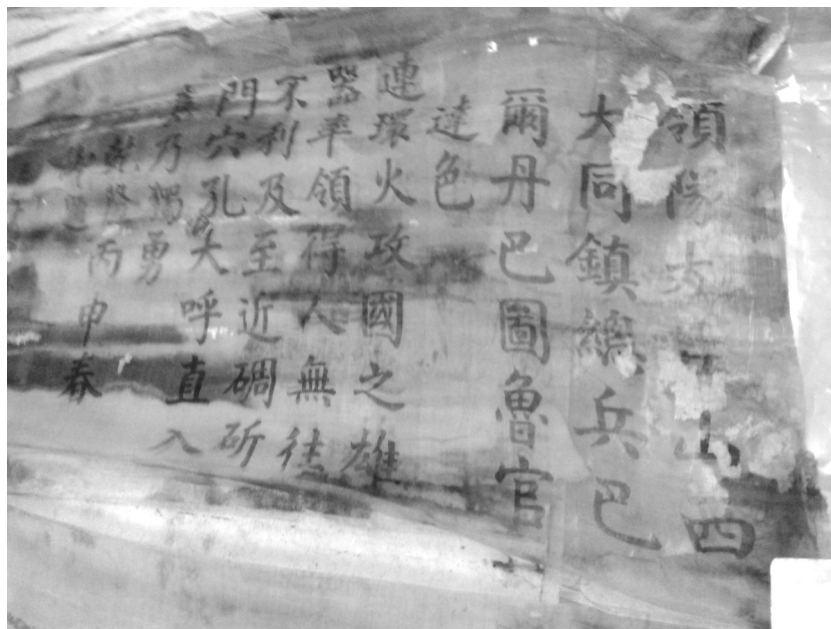 領隊大山四
大同鎮總兵巴
爾丹巴圖魯官
達色
連環火攻國之雄
器率領得人無往
不利及至近碉斫
門穴孔大呼直入
真乃獨勇
乾隆丙申春
御題